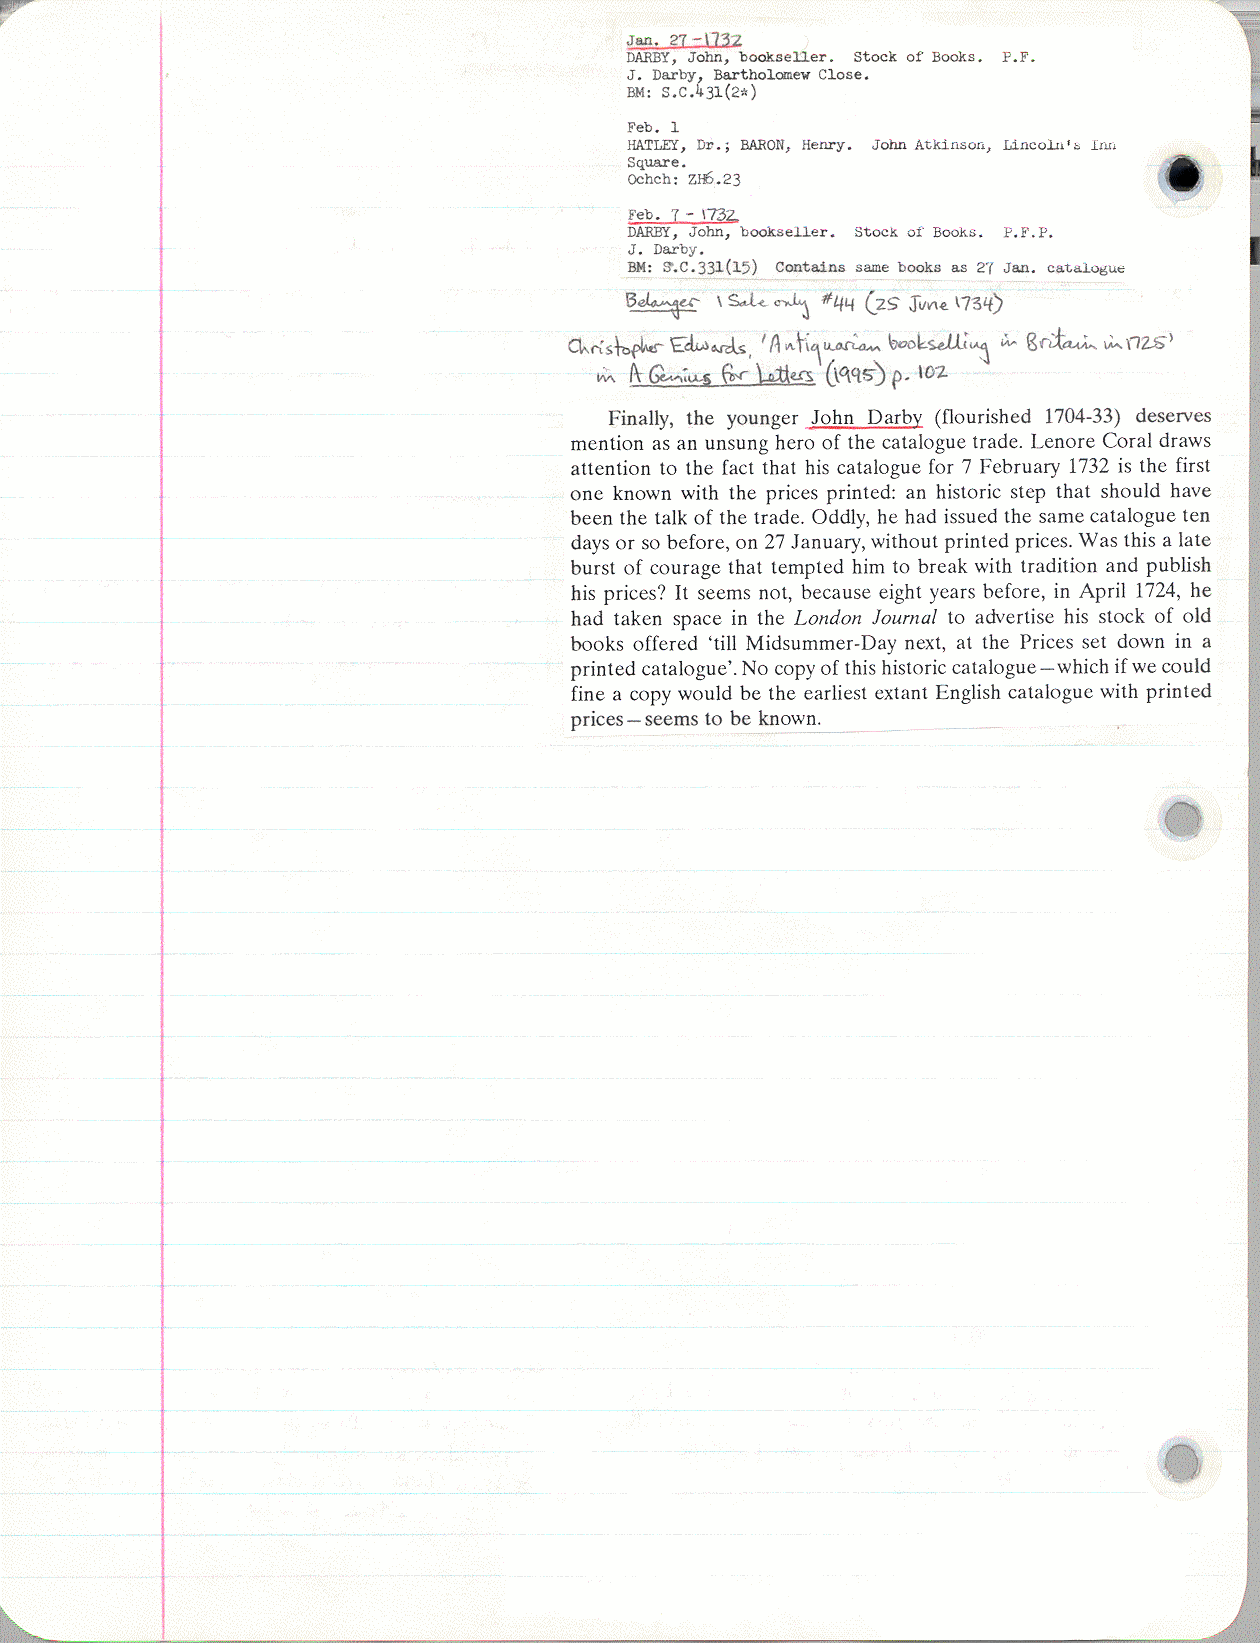 Jan. 27 - 1732
DARBY, John, bookseller. Stock of Books. P.F.
J. Darby, Bartholomew Close.
BM: S.C.431(2*)
Feb. 1
HATLEY, Dr.; BARON, Henry. John Atkinson, Lincoln's Inn
Square.
Ochch: ZH6.23
Feb. 7 - 1732
DARBY, John, bookseller. Stock of Books. P.F.P.
J. Darby.
BM: S.C.331(15) Contains same books as 27 Jan. catalogue
Belanger 1 Sale only #44 (25 June 1734)
Christopher Edwards, 'Antiquarian bookselling in Britain in 1725'
in A Genius for Letters (1995) p. 102
Finally, the younger John Darby (flourished 1704-33) deserves
mention as an unsung hero of the catalogue trade. Lenore Coral draws
attention to the fact that his catalogue for 7 February 1732 is the first
one known with the prices printed: an historic step that should have
been the talk of the trade. Oddly, he had issued the same catalogue ten
days or so before, on 27 January, without printed prices. Was this a late
burst of courage that tempted him to break with tradition and publish
his prices? It seems not, because eight years before, in April 1724, he
had taken space in the London Journal to advertise his stock of old
books offered ‘till Midsummer-Day next, at the Prices set down in a
printed catalogue’. No copy of this historic catalogue—which if we could
fine a copy would be the earliest extant English catalogue with printed
prices—seems to be known.